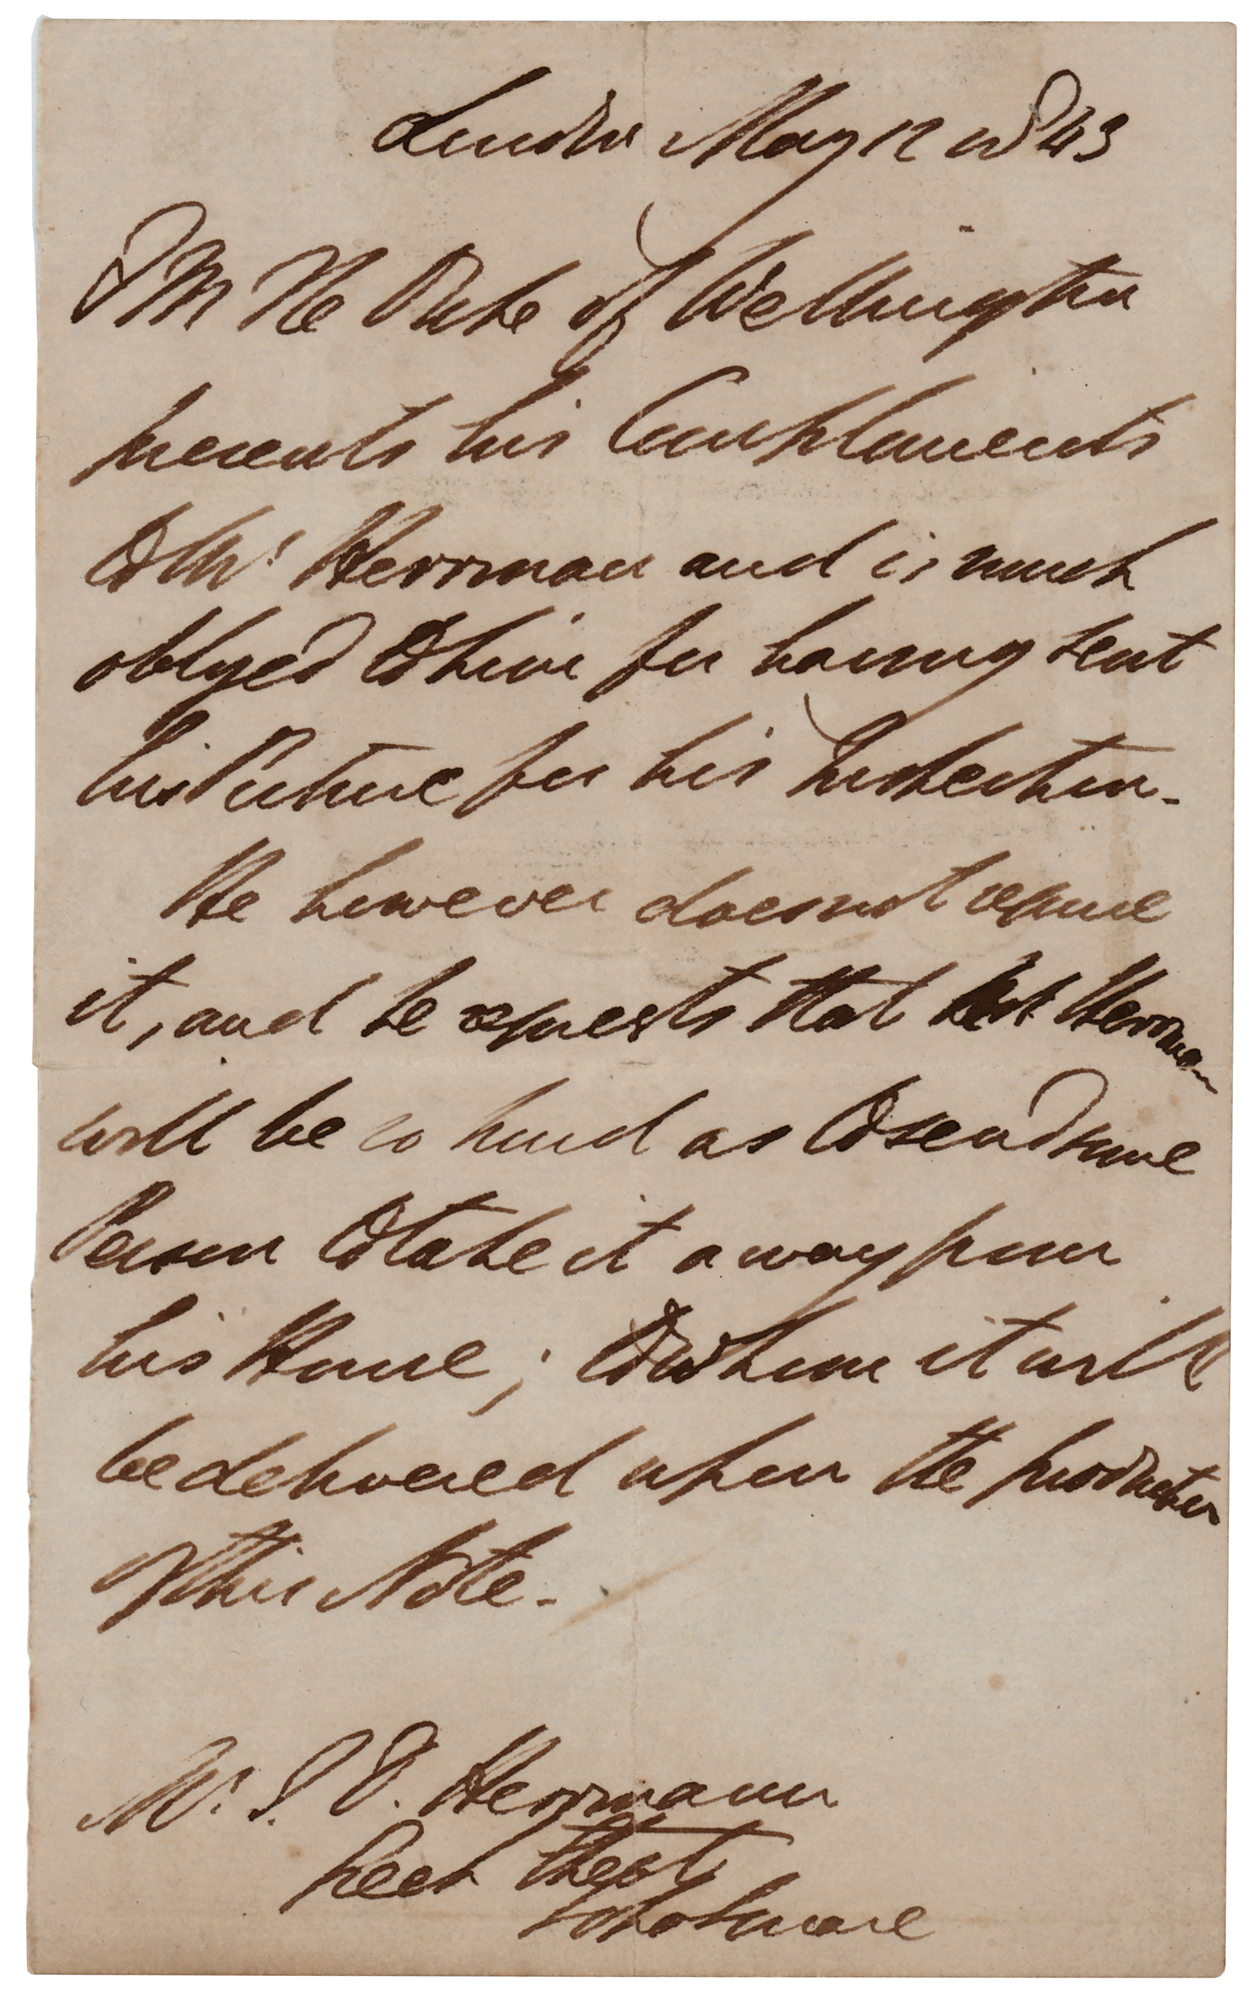 London May 12 1843
F M The Duke of Wellington
presents his Compliments
to Mr Herrman and is much
obliged to him for having sent
his Picture for his Inspection.
He however does not require
it, and he requests that Mr Herrman
will be so kind as to send some
Person to take it away from
his House; to whom it will
be delivered upon the production
of this Note.
Mr. J. V. Herrmann
Street
Soho Square